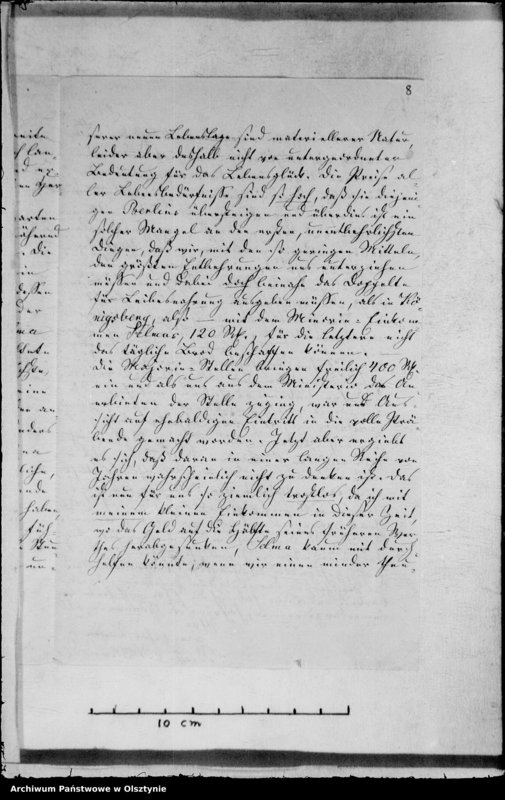 8
serer neuen Lebenslage sind materiellerer Natur,
leider aber deshalb nicht von untergeordneter
Bedeutung für das Lebensglück. Die Preise al-
ler Lebensbedürfnisse sind so hoch, daß sie diejeni-
gen Berlins übersteigen und überdies ist ein
solcher Mangel an den ersten, unentbehrlichsten
Dingen, daß wir, mit den so geringen Mitteln,
den größten Entbehrungen uns unterziehen
müssen und dabei doch beinahe das Doppelte
für Leibesnahrung ausgeben müssen, als in Kö-
nigsberg, also – mit dem Minorin-Einkom-
men Selmas, 120 für die letztere nicht
das tägliche Brod beschaffen können. –
Die Majorin-Stellen bringen freilich 400
ein und als uns aus dem Ministerio das An-
erbieten der Stelle zuging, war uns Aus-
sicht auf ehebaldigen Eintritt in die volle Prä-
bende gemacht worden. Jetzt aber ergiebt
es sich, daß daran in einer langen Reihe von
Jahren wahrscheinlich nicht zu denken ist. Das
ist nun für uns so ziemlich trostlos, da ich mit
meinem kleinen Einkommen in dieser Zeit,
wo das Geld auf die Hälfte seines früheren Wer-
thes herabgesunken, Selma kaum mit durch-
helfen könnte, wenn wir einen minder theu-
10 cm
Archiwum Państwowe w Olsztynie